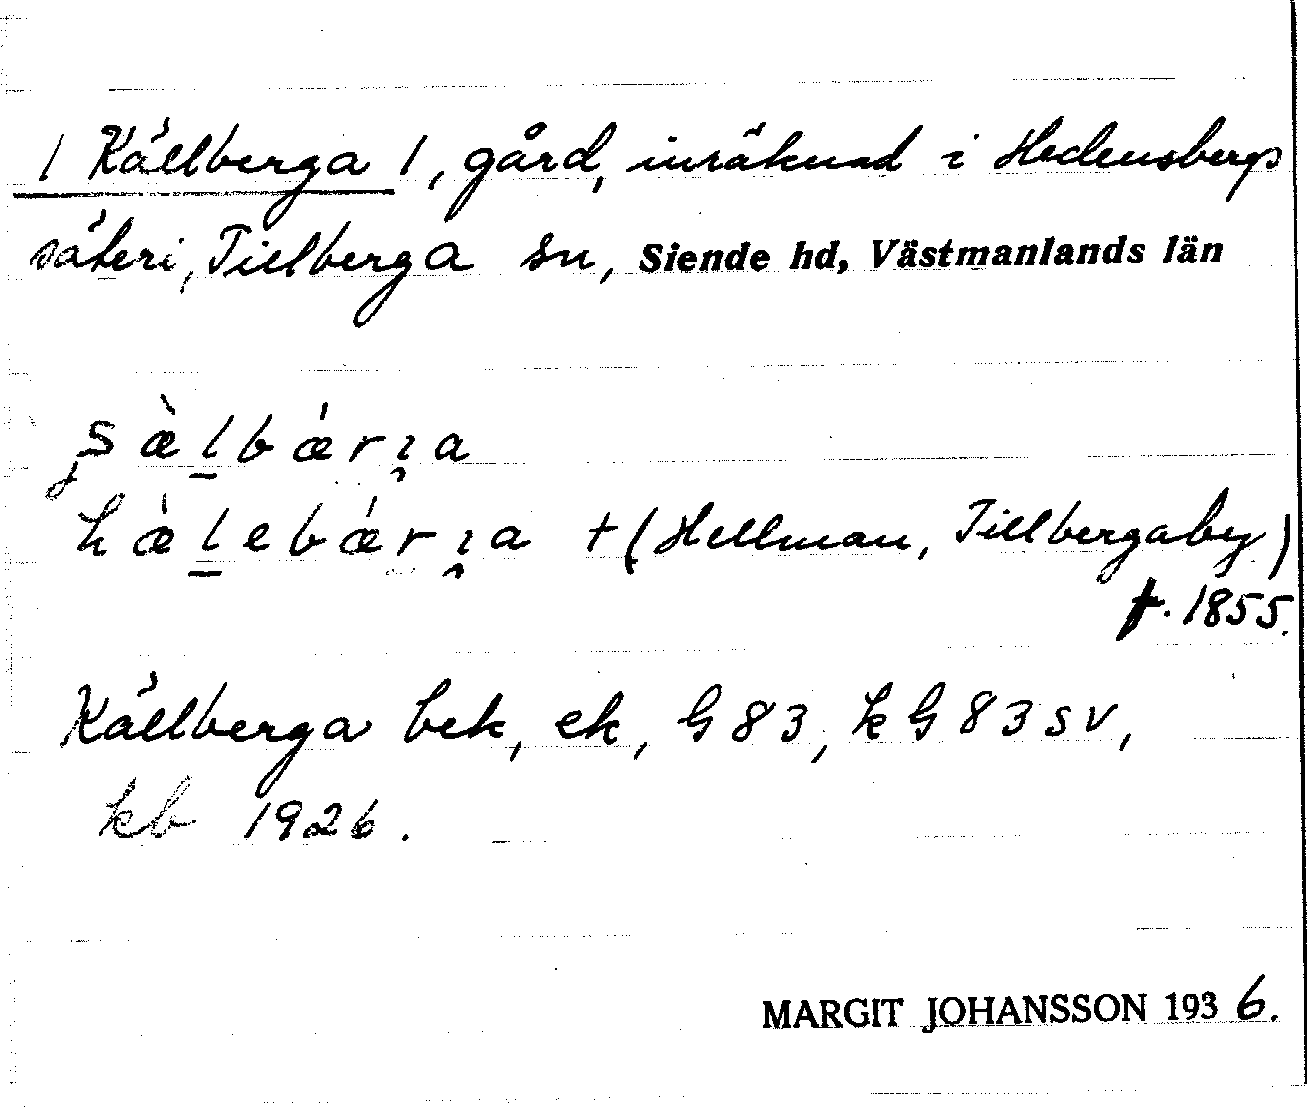 / Källberga /, gård, inräknad i Hedensbergs
säteri, Tillberga sn, Siende hd, Västmanlands län
sæ̀l̲bǽrı̯a
hæ̀l̲ebǽrı̯a + (Hellman, Tillbergaby)
f. 1855.
Källberga bek, ek, G 83, k G 83 sv,
kb 1926.
MARGIT JOHANSSON 1936.